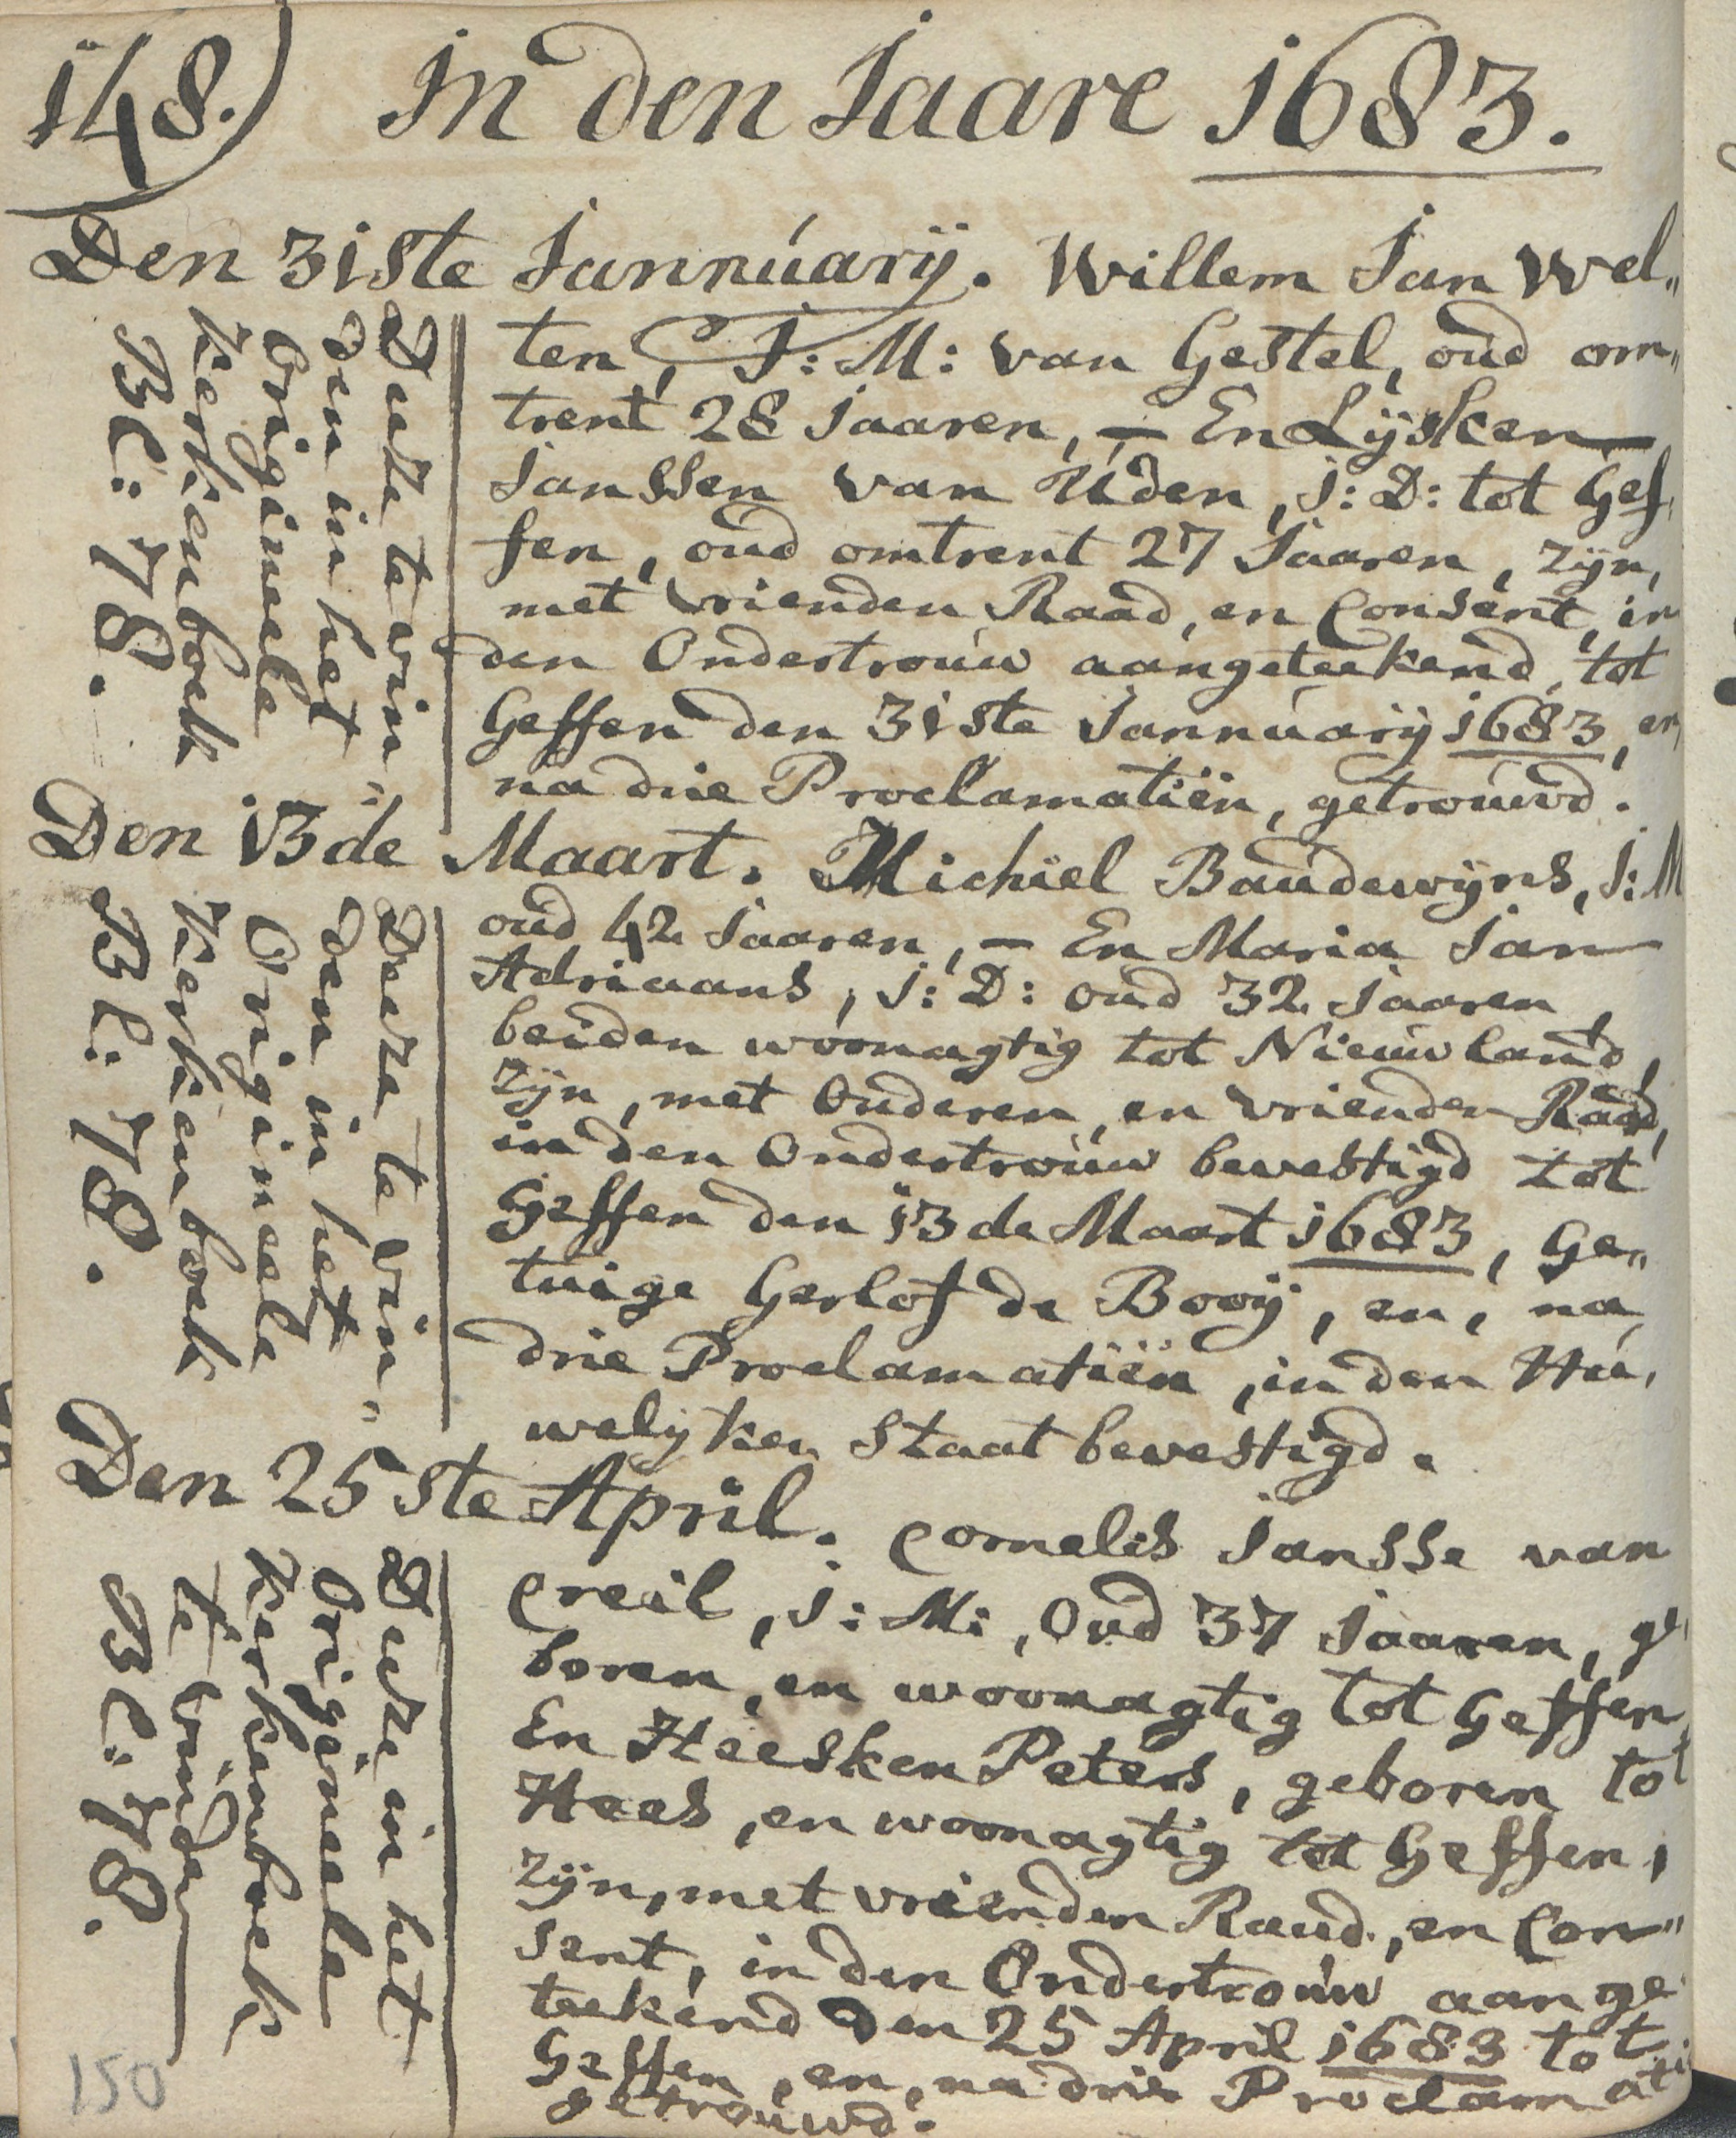 148.)
In den Jaare 1683.
Den 31ste Jannúarij. Willem Jan Wel„
ten, J: M: van Gestel, oud om„
trent 28 Jaaren, — En Lijsken
Janssen van Uden, J: D: tot Gef„
fen, oud omtrent 27 Jaaren, zijn,
met vrienden Raad, en Consent, in
den Ondertroúw aangeteekend, tot
Geffen den 31ste Jannúarij 1683, en
na drie Proclamatiën, getroúwd.
Deeze te vin„
den in het
Origineele
Kerkenboek
Bl: 78.
Den 13de Maart. Michiel Baudewijns, J: M
oud 42 Jaaren, — En Maria Jan
Adriaans, J: D: oud 32 Jaaren,
beiden woonagtig tot Nieuwland,
zijn, met Ouderen, en vrienden Raad,
in den Ondertroúw bevestigd tot
Geffen den 13de Maart 1683, Ge„
tuige Gerlof de Booij, en, na
drie Proclamatiën, in den Hu„
welijken Staat bevestigd.
Deeze te vin„
den in het
Origineele
Kerkenboek
Bl: 78.
Den 25ste April. Cornelis Jansse van
Creil, J: M: Oud 37 Jaaren, ge„
boren, en woonagtig tot Geffen,
En Heesken Peters, geboren tot
Hees, en woonagtig tot Geffen,
zijn, met vrienden Raad, en Con„
sent, in den Ondertroúw aange„
teekend den 25 April 1683 tot
Geffen, en, na drie Proclamati
getroúwd.
Deeze in het
Origineele
Kerkenboek
te vinden
Bl: 78.
150